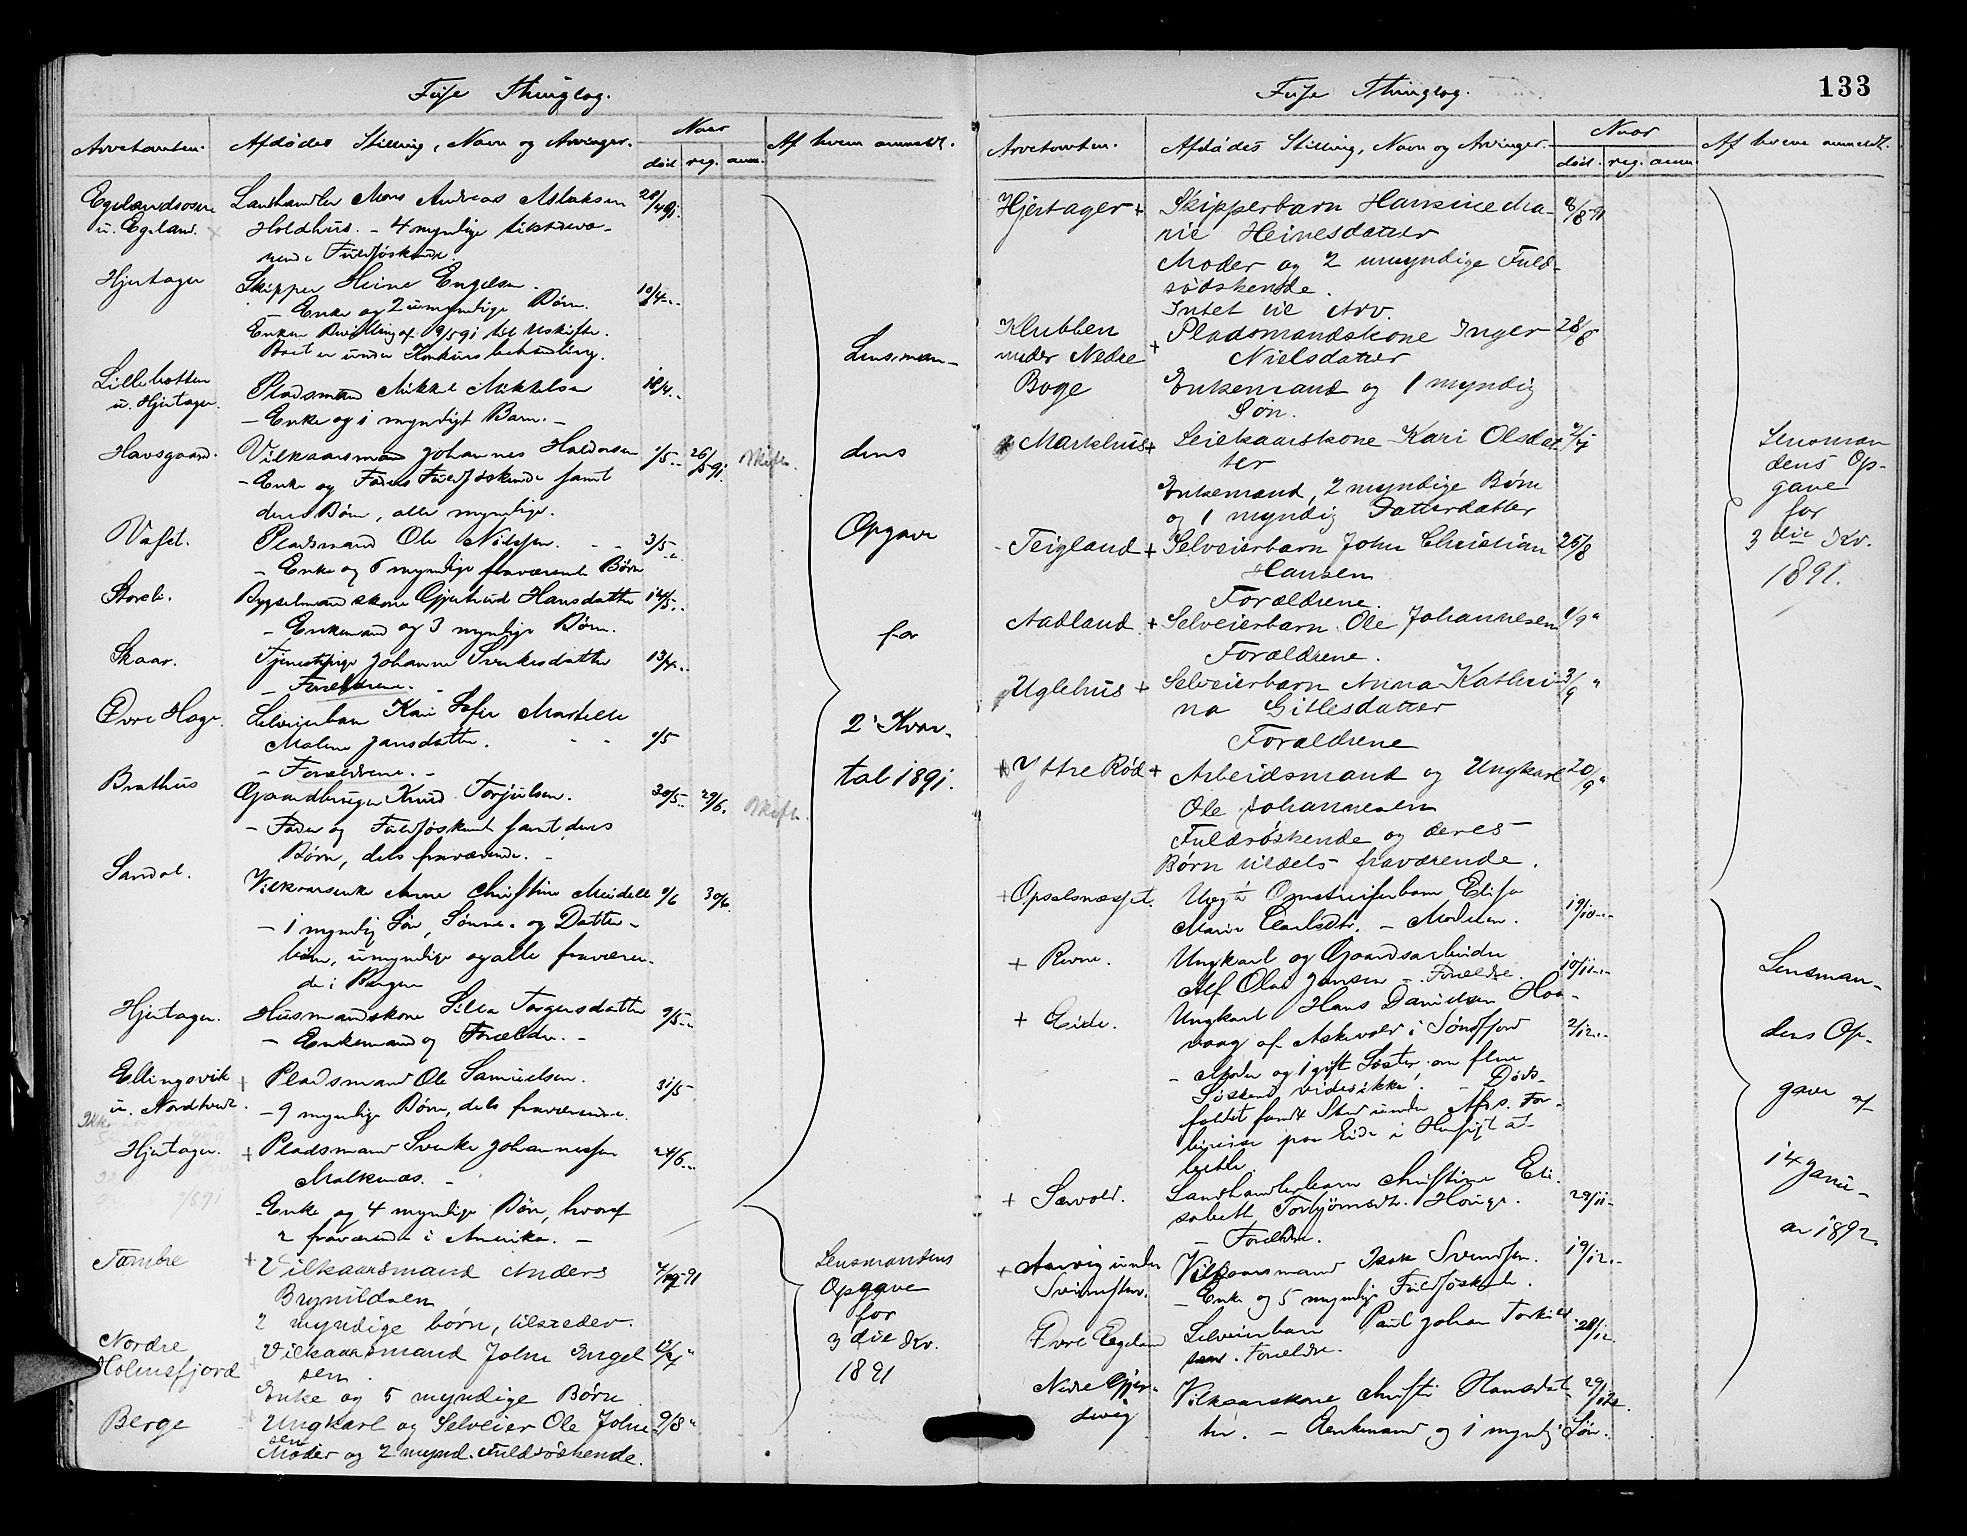 Fuse Thinglag.
Arvetomten.
Afdødes Stilling, Navn og Arvinger.
Naar
død. reg. anm.
Af hvem anmeldt.
Egelandsosen
u. Egeland.
Landhandler Mons Andreas Aslaksen
Holdhus. - 4 myndige tilstedevæ-
rende Fuldsøskende.
28/4 91.
Hjertager
Skipper Heine Engelsen.
- Enke og 2 umyndige Børn.
Enken Bevilling af 9/5 91 til Uskifte.
Boet er under Konkursbehandling.
10/4 "
Lillebotten
u. Hjertager.
Pladsmand Mikkel Mikkelsen
- Enke og 1 myndigt Barn. -
Havsgaard.
Vilkaarsmand Johannes Haldorsen
- Enke og Faders Fuldsøskende samt
deres Børn, alle myndige.
1/5 " 26/5 91. Skifte.
Pladsmand Ole Nilssen.
- Enke og 6 myndige fraværende Børn
3/5 "
Bygselmandskone Gjertrud Hansdatter
- Enkemand og 3 myndige Børn.
14/5 "
Skaar.
Tjenestepige Johanne Sverkesdatter
- Forældrene. -
13/4 "
Øvre Hage.
Selveierbarn Kari Sofie
Malene Jansdatter.
- Forældrene. -
Brathus
Gaardbruger Knud Torjulsen.
- Fader og Fuldsøskende samt deres
Børn, dels fraværende. -
30/5 " 29/6. Skifte.
Sandal.
Vilkaarsenke Anne Christine Meidell
- 1 myndig Søn, Sønne- og Datter-
børn, umyndige og alle fraværen-
de i Bergen
9/6 30/6.
Hjertager.
Husmandskone Silla Torgersdatter
- Enkemand og Forældre. -
9/5 "
Ellingsvik
u. Nordtvedt.
+ Pladsmand Ole Samuelsen.
- 9 myndige Børn, dels fraværende.
31/5
Hjertager.
+ Pladsmand Sverke Johannessen
Malkenæs. -
- Enke og 4 myndige Børn, hvoraf
2 fraværende i Amerika. -
24/6 "
Lensman-
dens
Opgave
for
2' Kvar-
tal 1891.
Tømbre
+ Vilkaarsmand Anders
Brynildsen
2 myndige børn, tilstedev.
Nordre
Holmefjord
+ Vilkaarsmand John Engel
sen.
Enke og 5 myndige Børn
Berge
Ungkarl og Selveier Ole John
sen
Moder og 2 mynd. Fuldsøskende.
9/8 "
Lensmandens
Opgave
for
3 die Kv.
1891
Fuse Thinglag.
133
Arvetomten.
Afdødes Stilling, Navn og Arvinger.
Naar
død. reg. anm.
Af hvem anmeldt.
Hjertager +
Skipperbarn Hansine Ma-
rie Heinesdatter
Moder og 2 umyndige Fuld-
sødskende.
Intet til Arv.
8/8 91
Klubben
under Nedre
Boge
+ Pladsmandskone Inger
Nielsdatter
Enkemand og 1 myndig
Søn.
28/8
Markhus +
Leiekaarskone Kari Olsdat
ter
Enkemand, 2 myndige Børn
og 1 myndig Datterdatter
Teigland +
Selveierbarn John Christian
Hansen
Forældrene.
26/8
Aadland. +
Selveierbarn Ole Johannesen
Forældrene.
1/9 "
Uglehus +
Selveierbarn Anna Kathri
na Gitlesdatter
Forældrene
3/9 "
Yttre Rød +
Arbeidsmand og Ungkarl
Ole Johannesen
Fuldsøskende og deres
Børn tildels fraværende.
20/9 "
Lensman
dens Op-
gave
for
3 die Kv.
1891.
+ Opsalsnæsset.
Omstreiferbarn Elisa
Marie Carlsdtr. - Moderen.
19/10 "
+ Revne.
Ungkarl og Gaardsarbeider
Alf Olai Jansen - Forældre.
10/11 "
+ Eide.
Ungkarl Hans Danielsen Hoa-
vaag af Askevold i Søndfjord
- Moder og 1 gift Søster, om flere
Søskend vides ikke. - Døds-
faldet fandt Sted under
paa Eide i Henseende at
2/12 "
+ Sævold.
Landhandlerbarn Christine Eli-
sabeth Torbjørnsdtr. Hauge.
- Forældre.
29/11 "
+ Aarvig under
Vilkaarsmand Isak Svendsen.
- Enke og 5 myndige Fuldsøskende.
19/12 "
Øvre Egeland
Selveierbarn Paul Johan Torkild-
sen. Forældre.
28/12
Nedre Gjer-
devig
Vilkaarskone Christi Hansdat-
ter. - Enkemand og 1 myndig Søn.
29/12 "
Lensman-
dens Op-
gave af
14 Janu-
ar 1892.